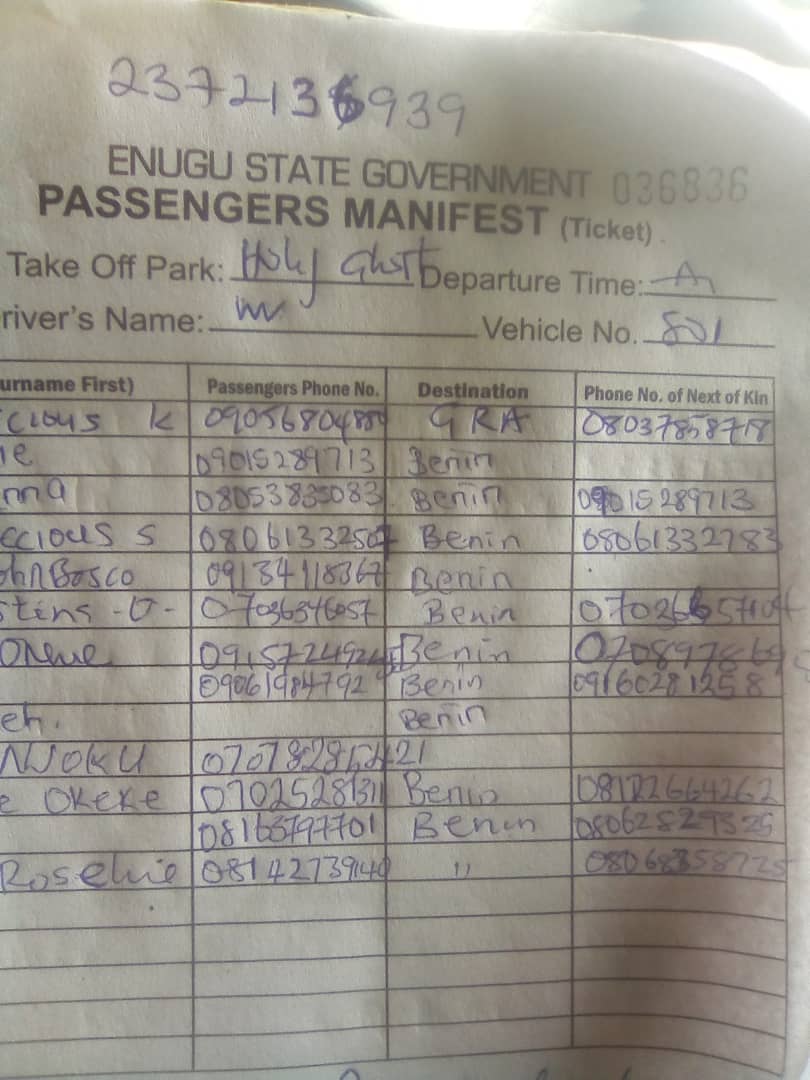 2372136939
ENUGU STATE GOVERNMENT 036836
PASSENGERS MANIFEST (Ticket).
Take Off Park: Holy Ghost Departure Time:
river's Name: Vehicle No. 801
urname First) Passengers Phone No. Destination Phone No. of Next of Kin
cious k GRA 08037858718
ie 09015289713 Benin
nna 08053835083 Benin 09015289713
eccious s 08061332507 Benin 08061332783
ohn Bosco 09134118367 Benin
stens -O- 07036346057 Benin
Benin
09061984792 Benin 09160281258
eh. Benin
NJOKU
e OKEKE 07025281311 Benin 08122664262
08163797701 Benin 08062829525
Roseline 08142739140 " 08068358725